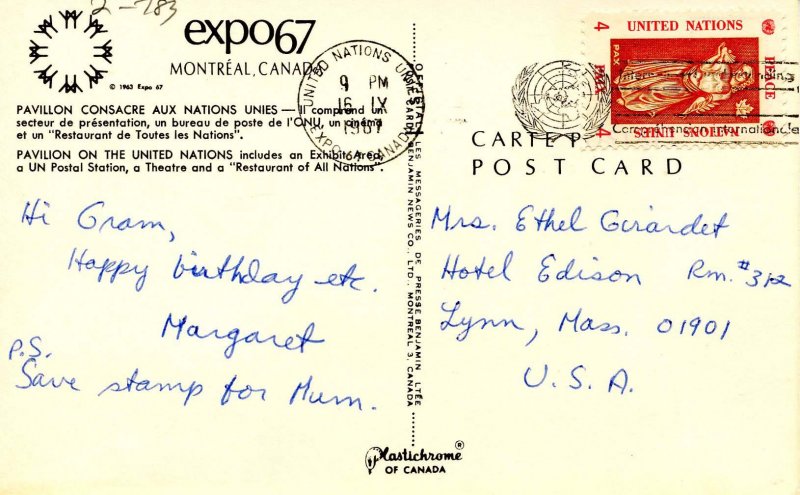 2-783
expo67
MONTRÉAL, CANADA
© 1963 Expo 67
PAVILLON CONSACRE AUX NATIONS UNIES — Il comprend un
secteur de présentation, un bureau de poste de l'ONU, un cinéma
et un "Restaurant de Toutes les Nations".
PAVILION ON THE UNITED NATIONS includes an Exhibit Area,
a UN Postal Station, a Theatre and a "Restaurant of All Nations".
UNITED NATIONS
9 PM
16 IX
1967
EXPO, CANADA
Hi Gram,
Happy birthday etc.
Margaret
P.S.
Save stamp for Mum.
LES MESSAGERIES DE PRESSE BENJAMIN LTÉE
BENJAMIN NEWS CO. LTD. MONTREAL 3, CANADA
Plastichrome®
OF CANADA
4 UNITED NATIONS
PEACE
PAX
PAIX
4 NATIONS UNIES
CARTE P
POST CARD
Mrs. Ethel Girardet
Hotel Edison Rm. #312
Lynn, Mass. 01901
U.S.A.